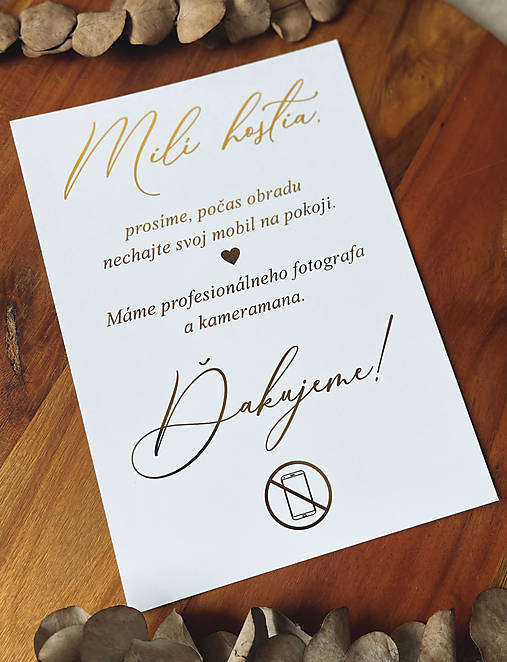 Milí hostia,
prosíme, počas obradu
nechajte svoj mobil na pokoji.
Máme profesionálneho fotografa
a kameramana.
Ďakujeme!